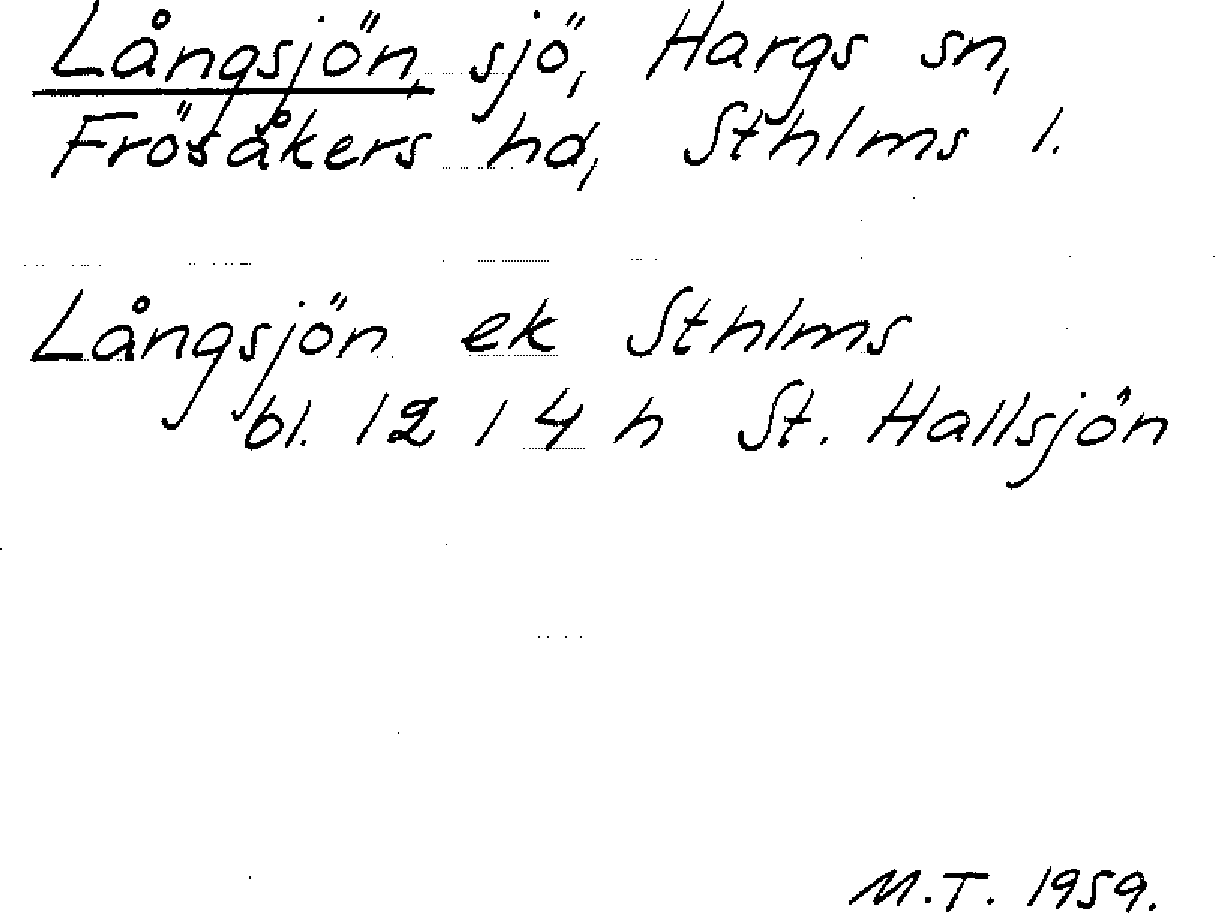 Långsjön, sjö, Hargs sn,
Frösåkers hd, Sthlms l.
Långsjön ek Sthlms
bl. 12 14 h St. Hallsjön
M.T. 1959.